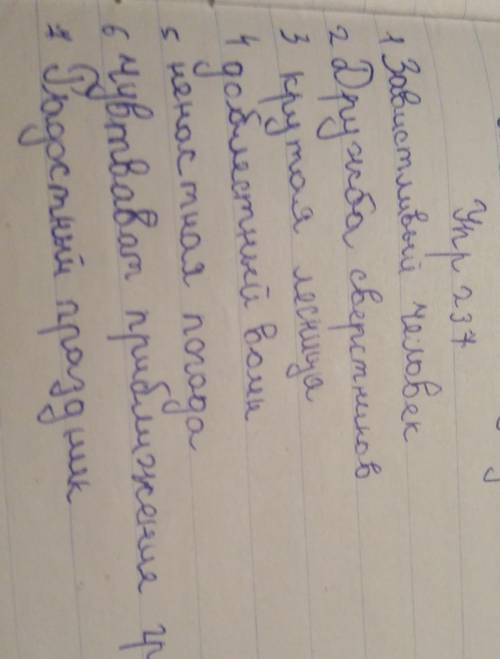 Упр 237
1 Завистливый человек
2 Дружба сверстников
3 крутая лесница
4 доблестный воин
5 ненастная погода
6 чувтвават приближение гр
7 Радостный праздник